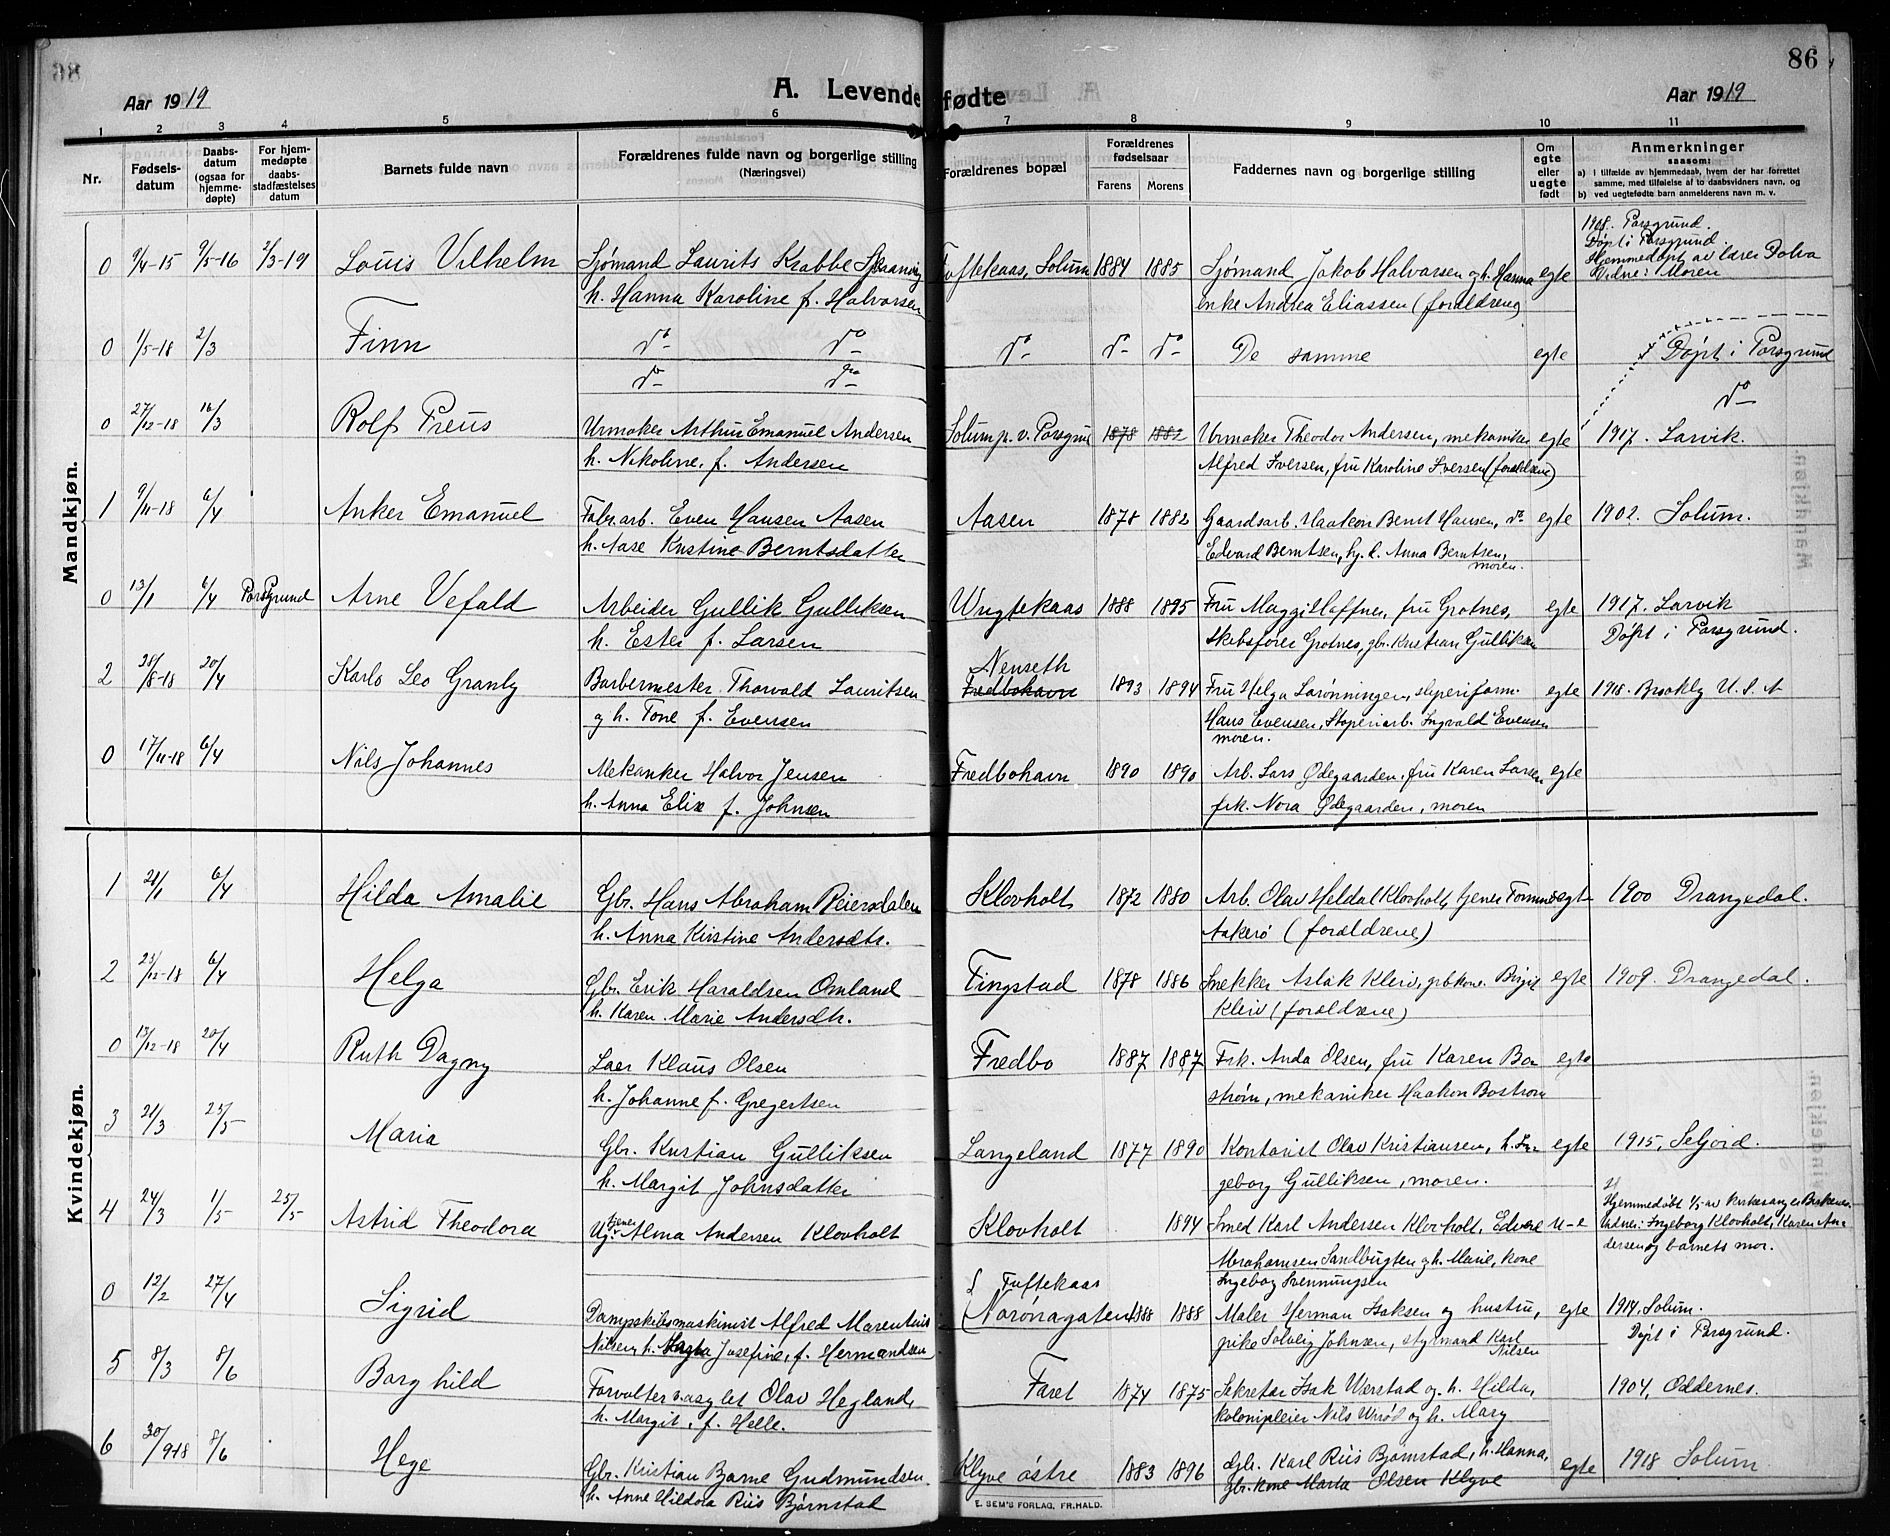 86
Aar 1919
A. Levende fødte
Aar 1919
1 2 3 4 5 6 7 8 9 10 11
Nr.
Fødsels-
datum
Daabs-
datum
(ogsaa for
hjemme-
døpte)
For hjem-
medøpte
daabs-
stadfæstelses
datum
Barnets fulde navn
Forældrenes fulde navn og borgerlige stilling
(Næringsvei)
Forældrenes bopæl
Forældrenes
fødselsaar
Farens Morens
Faddernes navn og borgerlige stilling
Om
egte
eller
uegte
født
Anmerkninger
saasom:
a) I tilfælde av hjemmedaab, hvem der har forrettet
samme, med tilføielse af to daabsvidners navn, og
b) ved uegtefødte barn anmelderens navn m. v.
Mandkjøn.
1918. Porsgrund.
Døpt i Porsgrund.
Hjemmedøpt av lærer Dolva
Vidne: Moren
0 9/4-15 9/5-16 2/3-19 Louis Vilhelm Sjømand Laurits Krabbe Tuftekaas, Solum 1884 1885 Sjømand Jakob Halvorsen og h. Hanna egte
h. Hanna Karoline f. Halvorsen enke Andrea Eliassen (forældrene)
0 1/5-18 2/3 Finn do do do do do De samme egte Døpt i Porsgrund
do do do
0 27/12-18 16/3 Rolf Preus Urmaker Arthur Emanuel Andersen Solum p. v. Porsgrund 1878 1882 Urmaker Theodor Andersen, mekaniker egte 1917. Larvik.
h. Nikoline, f. Andersen Alfred Iversen, fru Karoline Iversen (forældrene)
1 9/11-18 6/4 Anker Emanuel Fabr.arb. Even Hansen Aasen Aasen 1878 1882 Gaardsarb. Haakon Bernt Hansen, do egte 1902. Solum.
h. Aase Kristine Berntsdatter Edvard Berntsen, hj. d. Anna Berntsen,
moren.
0 13/1 6/4 Porsgrund Arne Vefald Arbeider Gullik Gulliksen Vrigtekaas 1888 1895 Fru Maggi Haffner, fru Grotnes, egte 1917. Larvik
h. Ester f. Larsen Skibsfører Grotnes, gbr. Kristian Gulliksen Døpt i Porsgrund.
2 28/8-18 20/4 Karlo Leo Granly Barbermester Thorvald Lauritsen Nenseth Fredbohavn 1893 1894 Fru Helga Sarønningen, sliperiform. egte 1918. Brookly U. S. A
og h. Tone f. Evensen Hans Evensen, Sloperiarb. Ingvald Evensen
moren.
0 17/11-18 6/4 Nils Johannes Mekaniker Halvor Jensen Fredbohavn 1890 1890 Arb. Lars Ødegaarden, fru Karen Larsen egte
h. Anna Elise f. Johnsen frk. Nora Ødegaarden, moren
Kvindekjøn.
1 21/1 6/4 Hilda Amalie Gbr. Hans Abraham Reiersdalen Klovholt 1872 1880 Arb. Olav Heldal Klovholt, tjener egte 1900 Drangedal.
h. Anna Kirstine Andersdtr. Aakerø (forældrene)
2 23/12-18 6/4 Helga Gbr. Erik Haraldsen Omland Tingstad 1878 1886 Snekker Aslak Kleiv, grbkone. Birgit egte 1909. Drangedal.
h. Karen Marie Andersdtr. Kleiv (forældrene)
0 13/12-18 20/4 Ruth Dagny Laer Klaus Olsen Fredbo 1887 1887 Frk. Anda Olsen, fru Karen Bo- egte
h. Johanne f. Gregertsen strøm, mekaniker Haakon Bostrøm
3 21/3 25/5 Maria Gbr. Kristian Gulliksen Langeland 1877 1890 Kontorist Olav Kristiansen, h. In- egte 1915, Seljord.
h. Margit Johnsdatter geborg Gulliksen, moren.
4 24/3 1/5 25/5 Astrid Theodora Ug. tjener Alma Andersen Klovholt Klovholt 1894 Smed Karl Andersen Klovholt, Edvard u-e Hjemmedøbt 1/5 av kirkesanger
Abrahamsen Sandbugten og h. Marie, kone Vidner: Ingeborg Klovholt, Karen An-
Ingeborg Svenningsen dersen og barnets mor.
0 12/2 27/4 Sigrid Dampskibsmaskinist Alfred Marentius Tuftekaas Norønagaten 1888 1888 Maler Herman Isaksen og hustru, egte 1914, Solum.
Nilsen, h. Magda Josefine, f. Hermandsen pike Solveig Johnsen, styrmand Karl Nilsen Døpt i Porsgrund.
5 8/3 8/6 Borghild Forvalter Olav Hegland, Faret 1874 1875 Sekretær Isak Werstad og h. Hilda, 1904, Oddernes.
h. Margit, f. Helle. kolonipleier Nils og h. Mary
6 30/9-18 8/6 Hege Gbr. Kristian Barne Gudmundsen Klyve østre 1883 1896 Gbr. Karl Riis Bjørnstad, h. Hanna, egte 1918 Solum
h. Anne Hildora Riis Bjørnstad Gbr. kone Marta Olsen Klyve
E. SEM'S FORLAG, FR.HALD.